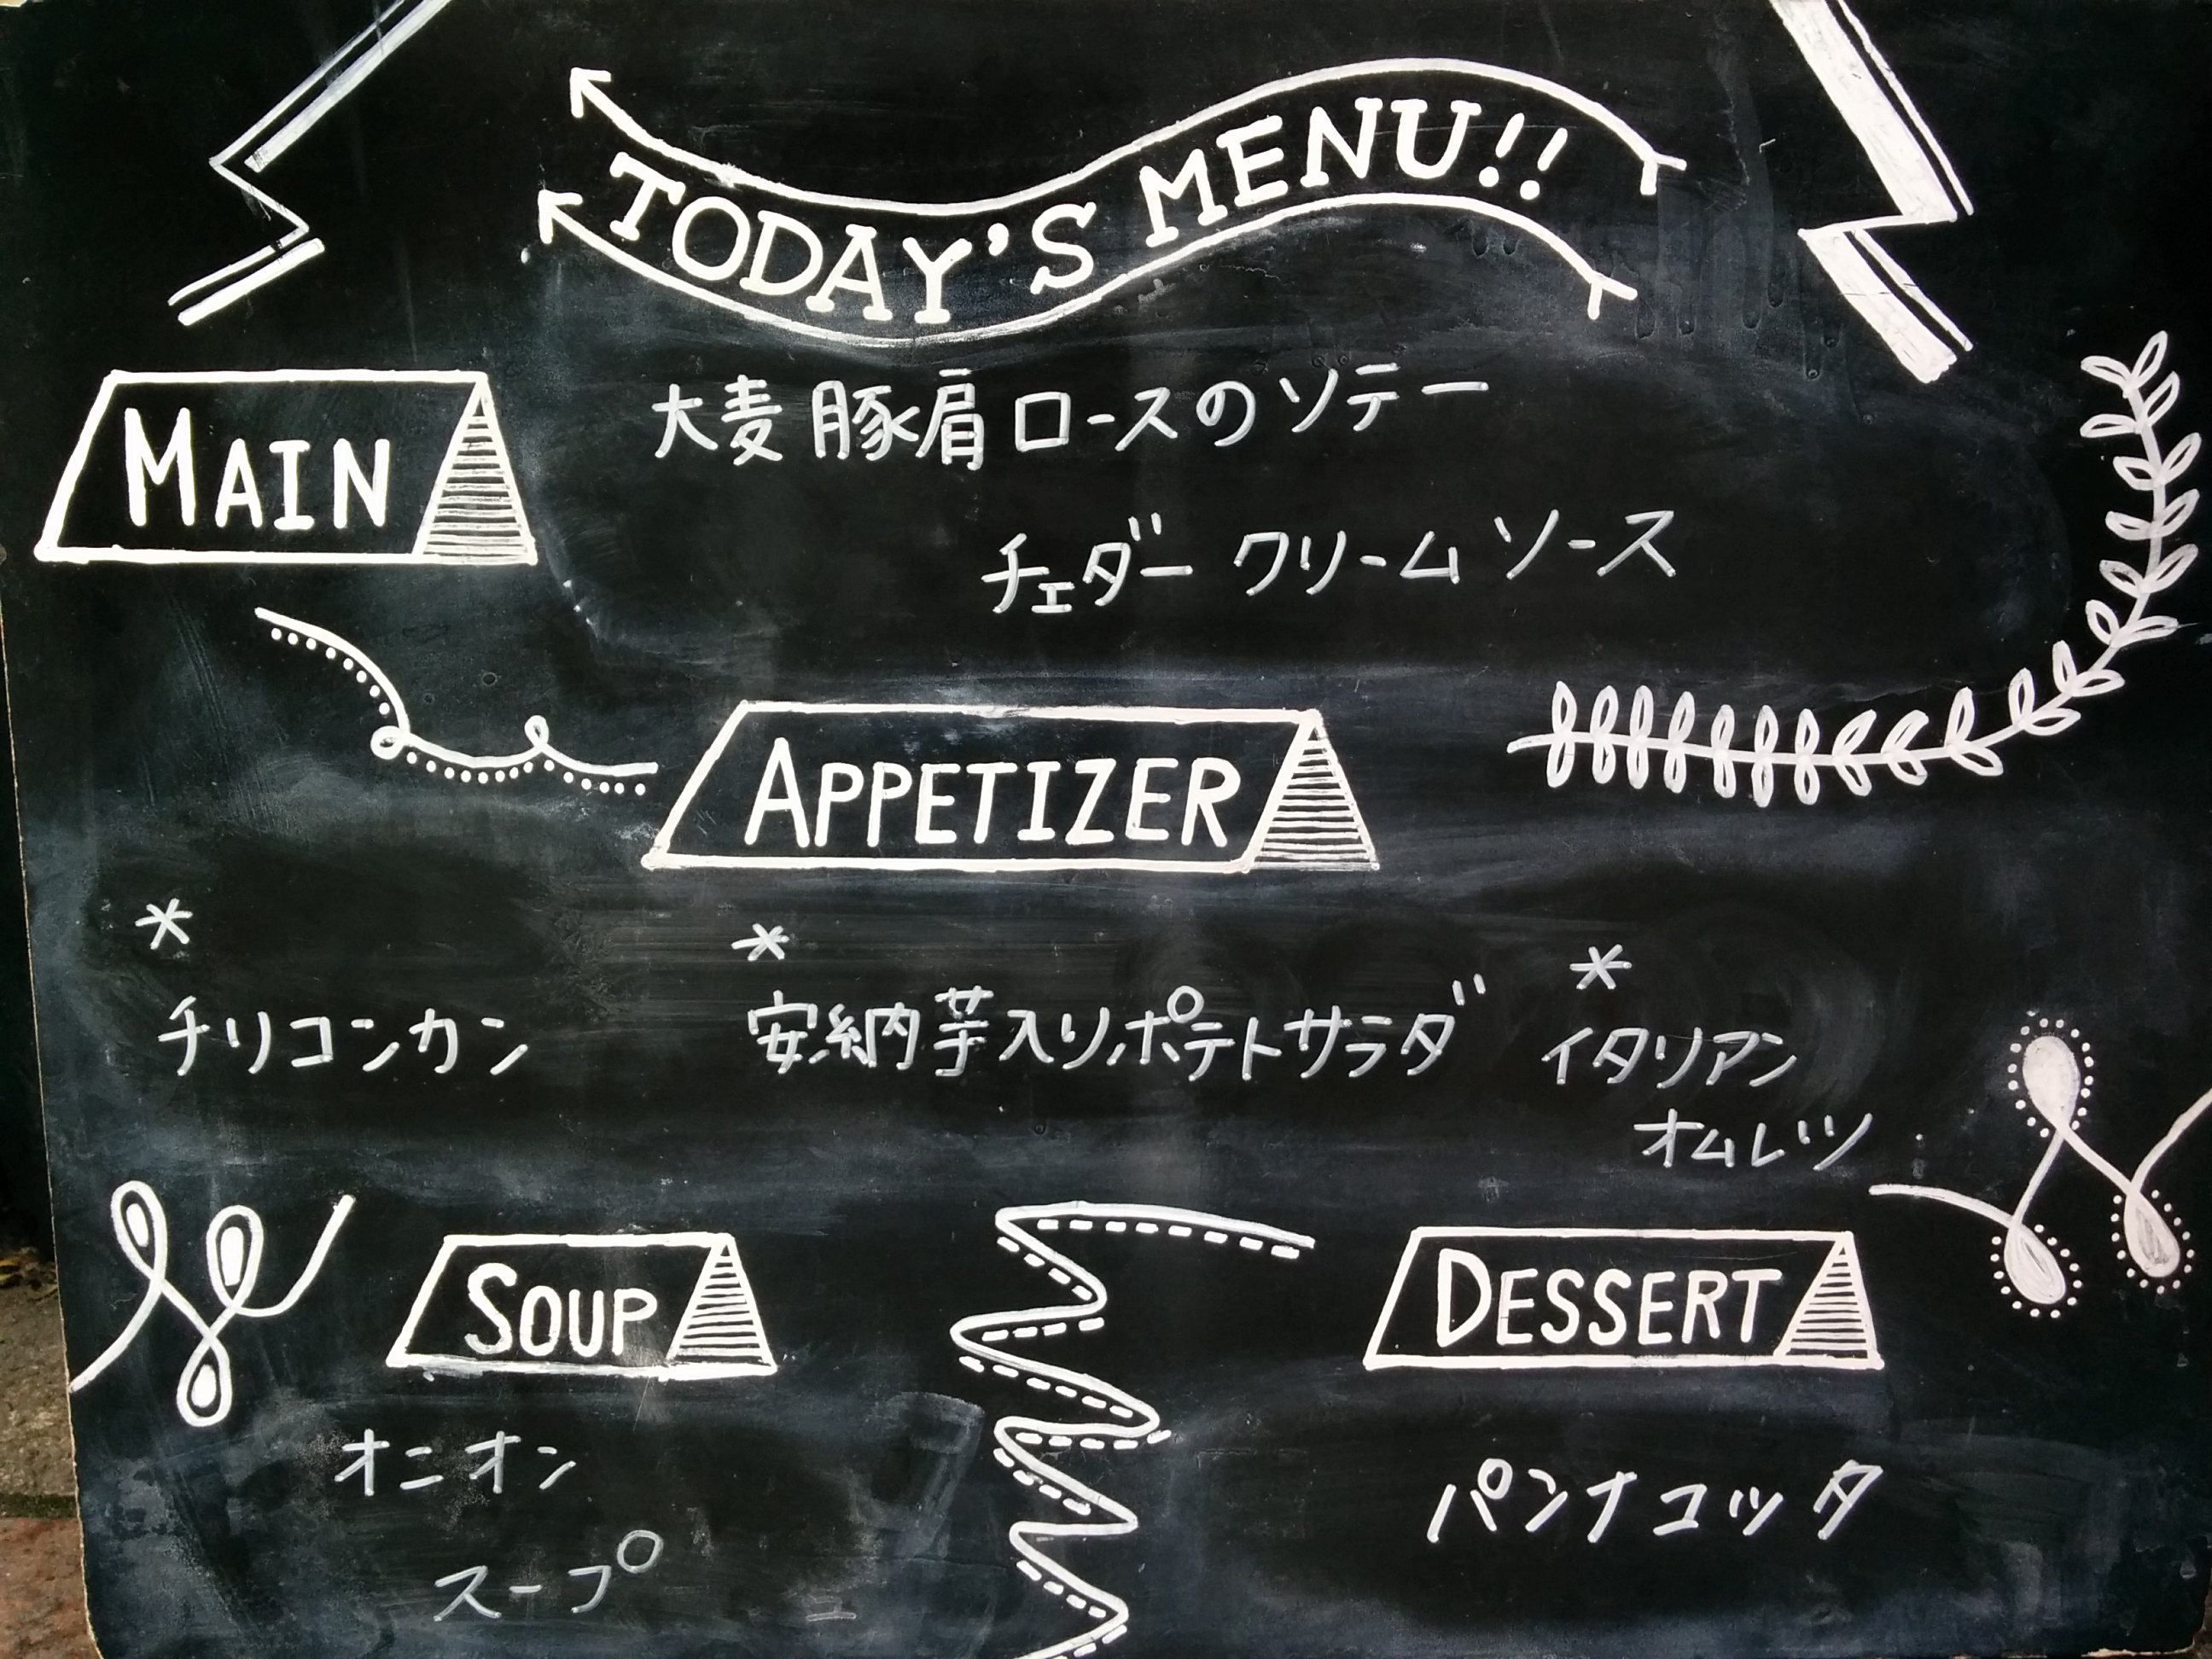 TODAY'S MENU!!
MAIN
大麦豚肩ロースのソテー
チェダークリームソース
APPETIZER
* * *
チリコンカン 安納芋入りポテトサラダ イタリアン
オムレツ
SOUP DESSERT
オニオン
スープ パンナコッタ